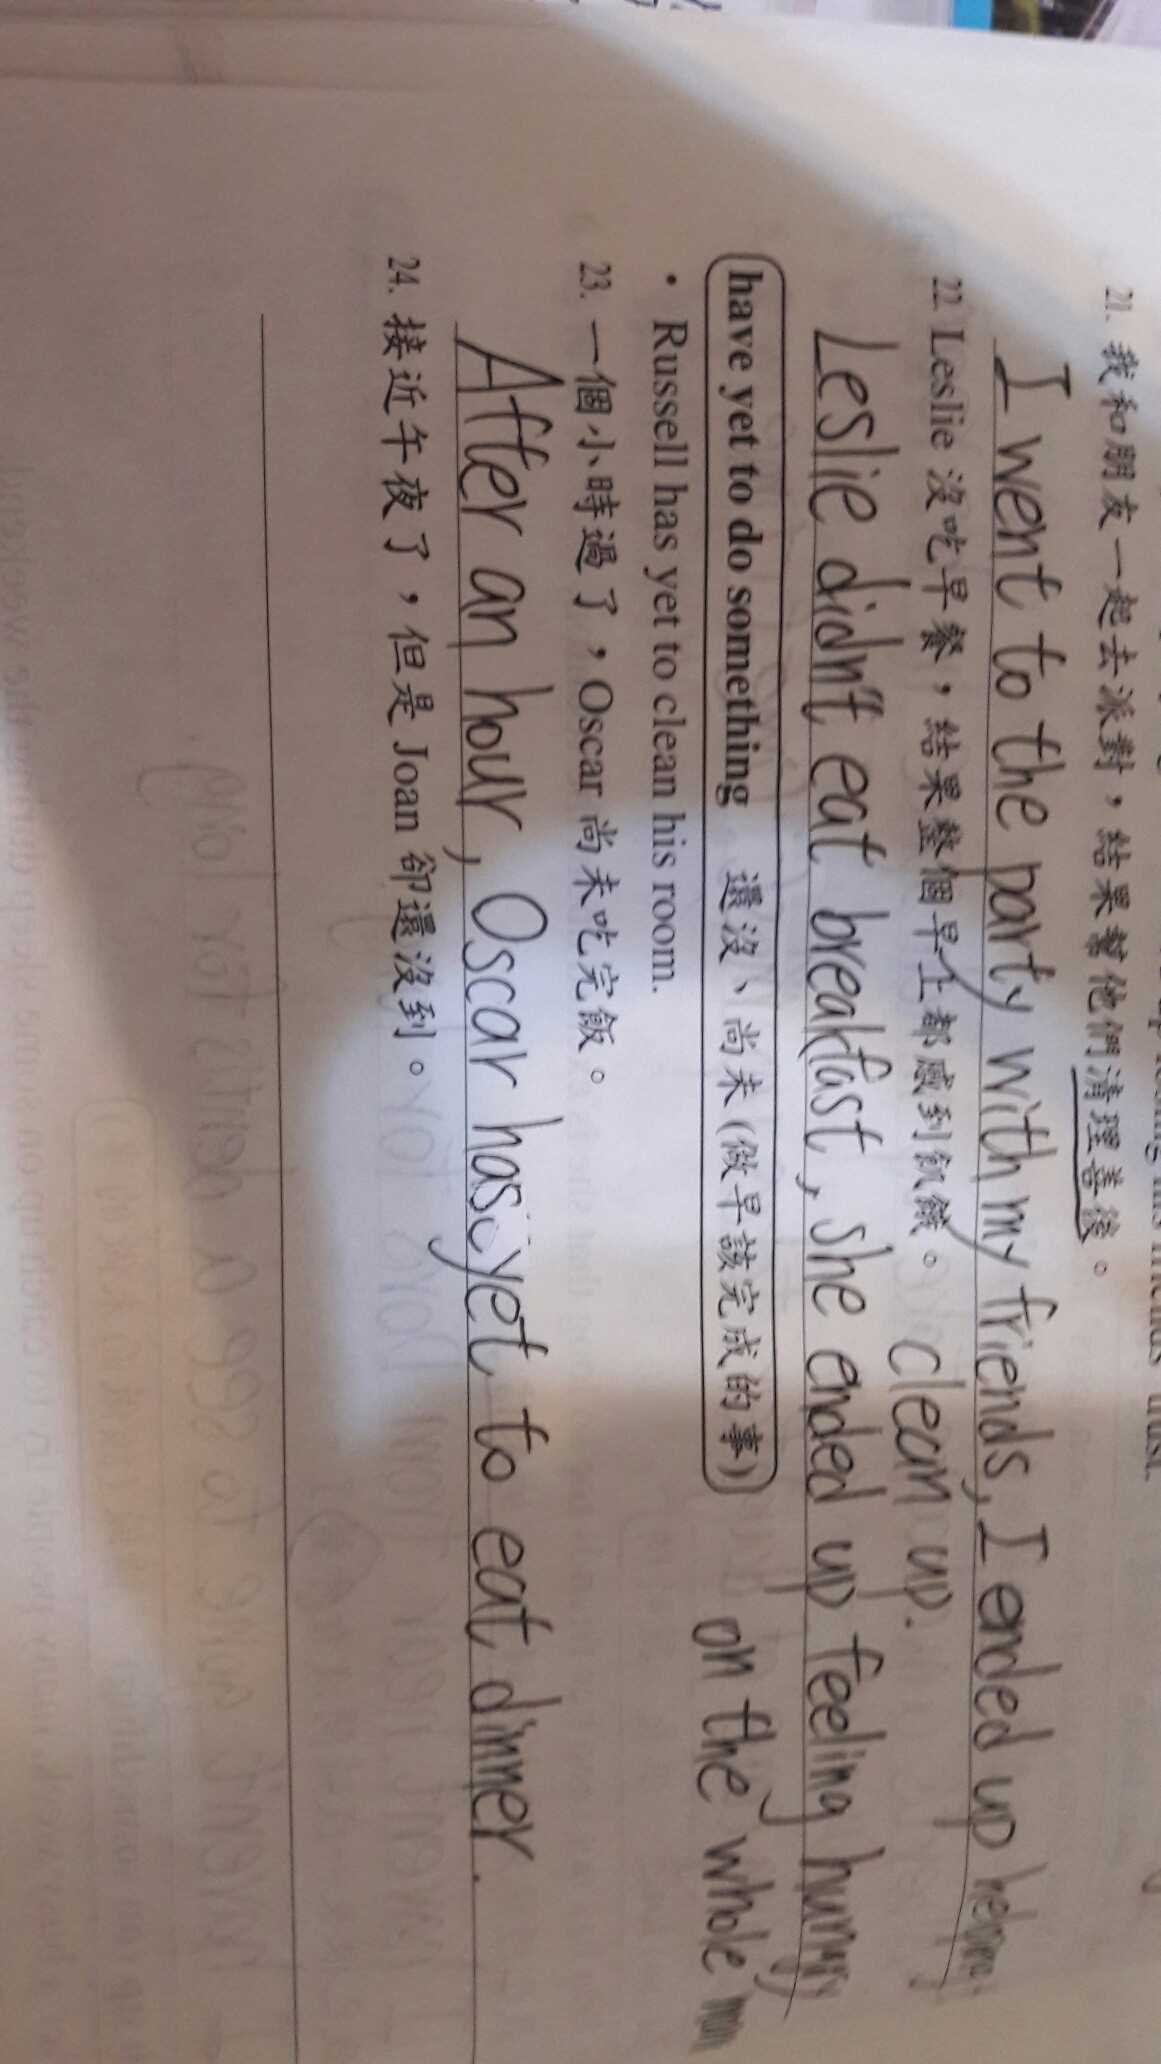 21. 我和朋友一起去派對，結果幫他們清理善後。
I went to the party with my friends, I ended up helping
clean up.
22. Leslie 沒吃早餐，結果整個早上都感到飢餓。
Leslie didn't eat breakfast, she ended up feeling hungry
on the whole
have yet to do something 還沒、尚未(做早該完成的事)
• Russell has yet to clean his room.
23. 一個小時過了，Oscar 尚未吃完飯。
After an hour, Oscar has yet to eat dinner.
24. 接近午夜了，但是 Joan 卻還沒到。